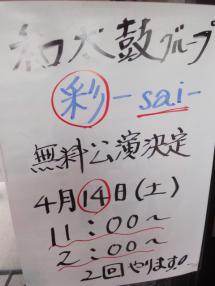 和太鼓グループ
彩-sai-
無料公演決定
4月14日(土)
11:00~
2:00~
2回やります。